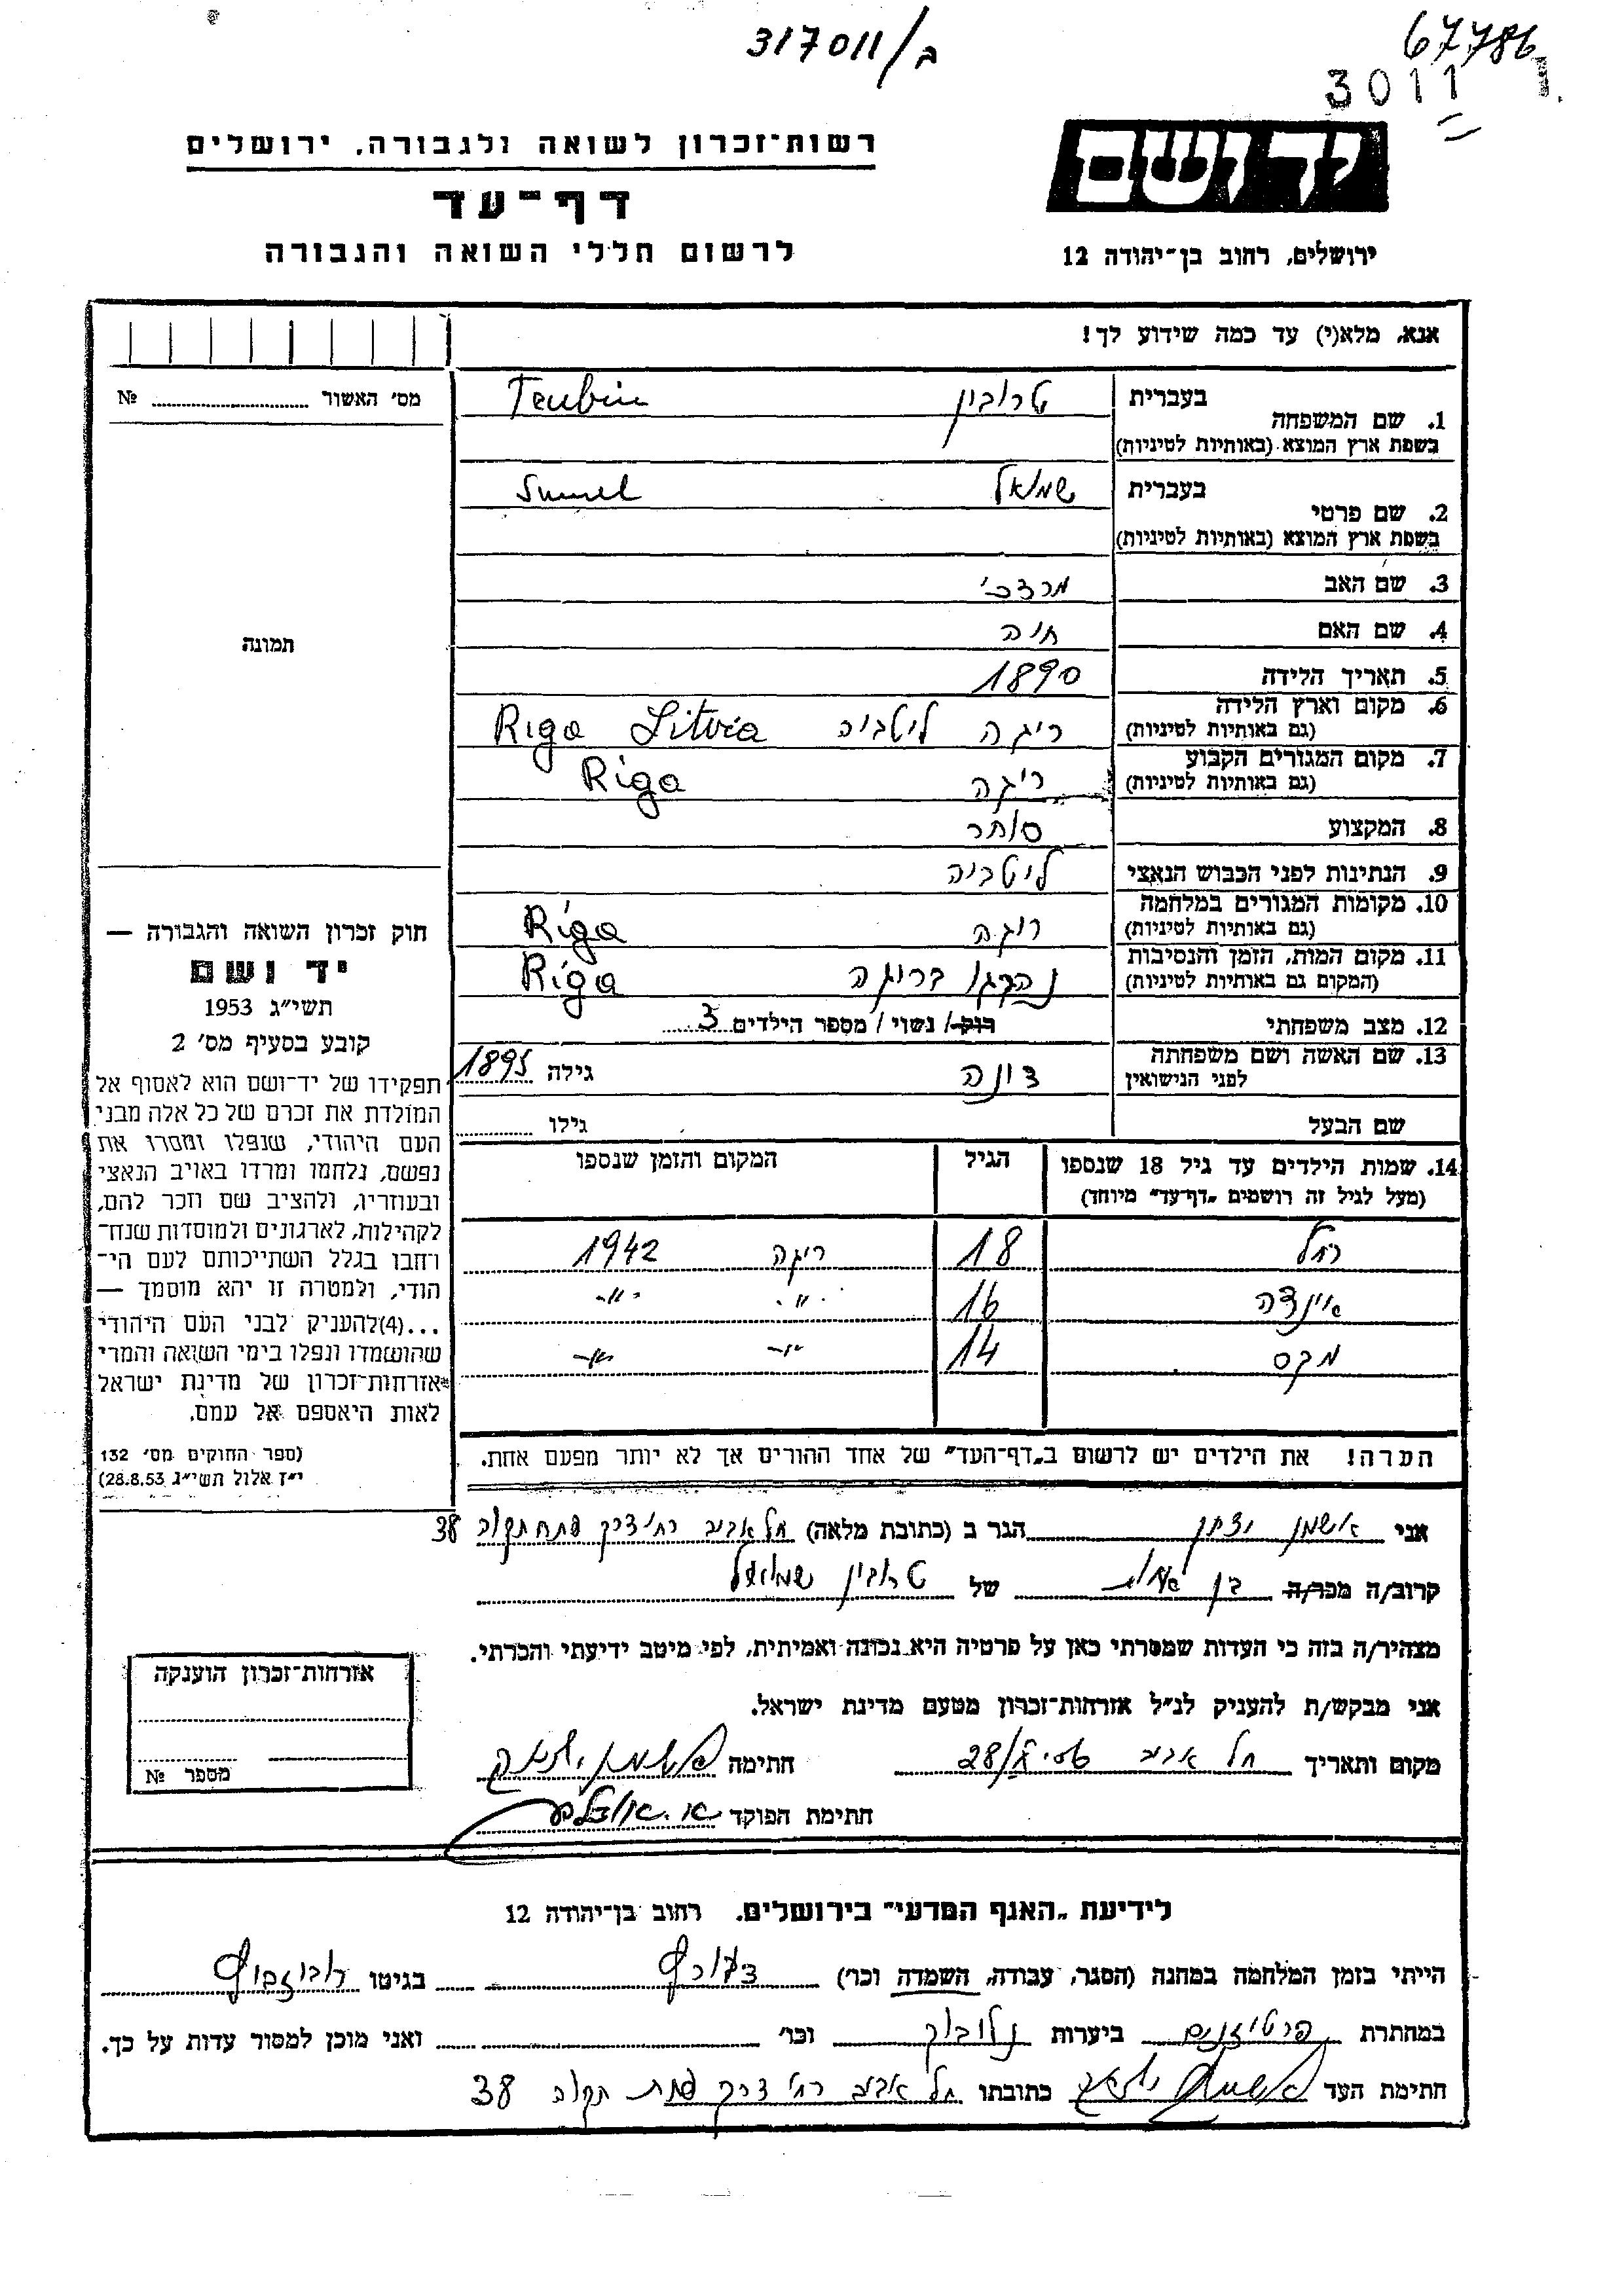 317011/ב
67786
3011 1.
יד ושם
ירושלים, רחוב בן־יהודה 12
רשות־זכרון לשואה ולגבורה, ירושלים
דף־עד
לרשום חללי השואה והגבורה
אנא, מלא(י) עד כמה שידוע לך!
מס׳ האשור № 
תמונה
חוק זכרון השואה והגבורה —
יד ושם
תשי״ג 1953
קובע בסעיף מס׳ 2
תפקידו של יד־ושם הוא לאסוף אל
המולדת את זכרם של כל אלה מבני
העם היהודי, שנפלו ומסרו את
נפשם, נלחמו ומרדו באויב הנאצי
ובעוזריו, ולהציב שם וזכר להם,
לקהילות, לארגונים ולמוסדות שנח־
רחבו בגלל השתייכותם לעם הי־
הודי, ולמטרה זו יהא מוסמך —
...(4)להעניק לבני העם היהודי
שהושמדו ונפלו בימי השואה והמרי
אזרחות־זכרון של מדינת ישראל
לאות היאספם אל עמם.
(ספר החוקים מס׳ 132
י״ז אלול תשי״ג 28.8.53)
בעברית טרובין Teubin
1. שם המשפחה
בשפת ארץ המוצא (באותיות לטיניות)
בעברית שמואל
2. שם פרטי
בשפת ארץ המוצא (באותיות לטיניות)
3. שם האב מרדכי
4. שם האם חיה
5. תאריך הלידה 1890
6. מקום וארץ הלידה ריגה ליטביה Riga Litvia
(גם באותיות לטיניות)
7. מקום המגורים הקבוע ריגה Riga
(גם באותיות לטיניות)
8. המקצוע סוחר
9. הנתינות לפני הכבוש הנאצי ליטביה
10. מקומות המגורים במלחמה ריגה Riga
(גם באותיות לטיניות)
11. מקום המות, הזמן והנסיבות נהרגו בריגה Riga
(המקום גם באותיות לטיניות)
12. מצב משפחתי רוק/ נשוי / מספר הילדים 3
13. שם האשה ושם משפחתה לפני הנישואין צונה גילה 1895
שם הבעל גילו
14. שמות הילדים עד גיל 18 שנספו הגיל המקום והזמן שנספו
(מעל לגיל זה רושמים „דף־עד״ מיוחד)
רחל 18 ריגה 1942
אינדה 16 -״- -״-
מקס 14 -״- -״-
הערה! את הילדים יש לרשום ב„דף־העד״ של אחד ההורים אך לא יותר מפעם אחת.
אני אשמן הגר ב (כתובת מלאה) תל אביב רח׳ דרך פתח תקוה 38
קרוב/ה מכר/ה בן של טרובין שמואל
מצהיר/ה בזה כי העדות שמסרתי כאן על פרטיה היא נכונה ואמיתית, לפי מיטב ידיעתי והכרתי.
אני מבקש/ת להעניק לנ״ל אזרחות־זכרון מטעם מדינת ישראל.
מקום ותאריך תל אביב חתימה
חתימת הפוקד
אזרחות־זכרון הוענקה
מספר №
לידיעת „האגף המדעי״ בירושלים. רחוב בן־יהודה 12
הייתי בזמן המלחמה במחנה (הסגר, עבודה, השמדה וכו׳) בגיטו
במחתרת פרטיזנים ביערות וכו׳ ואני מוכן למסור עדות על כך.
חתימת העד כתובתו תל אביב רח׳ דרך פתח תקוה 38